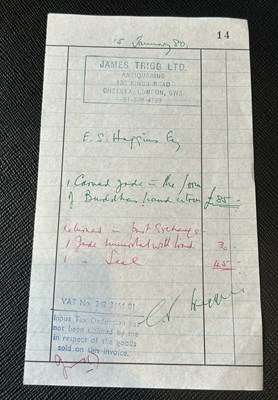 14
15 January 80.
JAMES TRIGG LTD.
ANTIQUARIUS
135 KINGS ROAD
CHELSEA, LONDON, SW3.
E. S. Higgins Esq
1 Carved Jade in the form
of Buddhas hand citron £85 —
Returned in part Exchange
1 Jade immortal with 30 -
1 " Seal 45 -
VAT No.
Input Tax Deduction has
not been claimed by me
in respect of the goods
sold on this invoice.